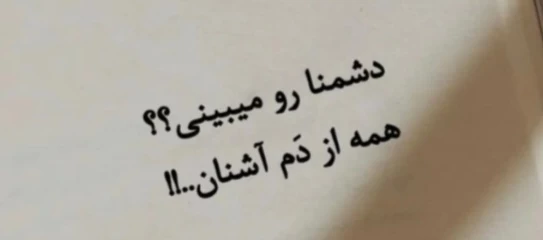 دشمنا رو میبینی؟؟
همه از دَم آشنان..!!